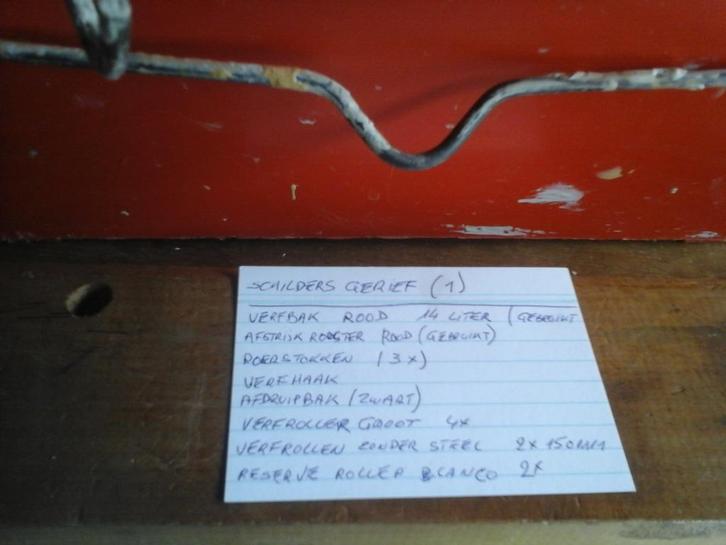 SCHILDERS GERIEF (1)
VERFBAK ROOD 14 LITER (GEBRUIKT
AFSTRIJK ROOSTER ROOD (GEBRUIKT)
ROERSTOKKEN (3x)
VERFHAAK
AFDRUIPBAK (ZWART)
VERFROLLER GROOT 4x
VERFROLLEN ZONDER STEEL 2x 150MM
RESERVE ROLLER BLANCO 2x